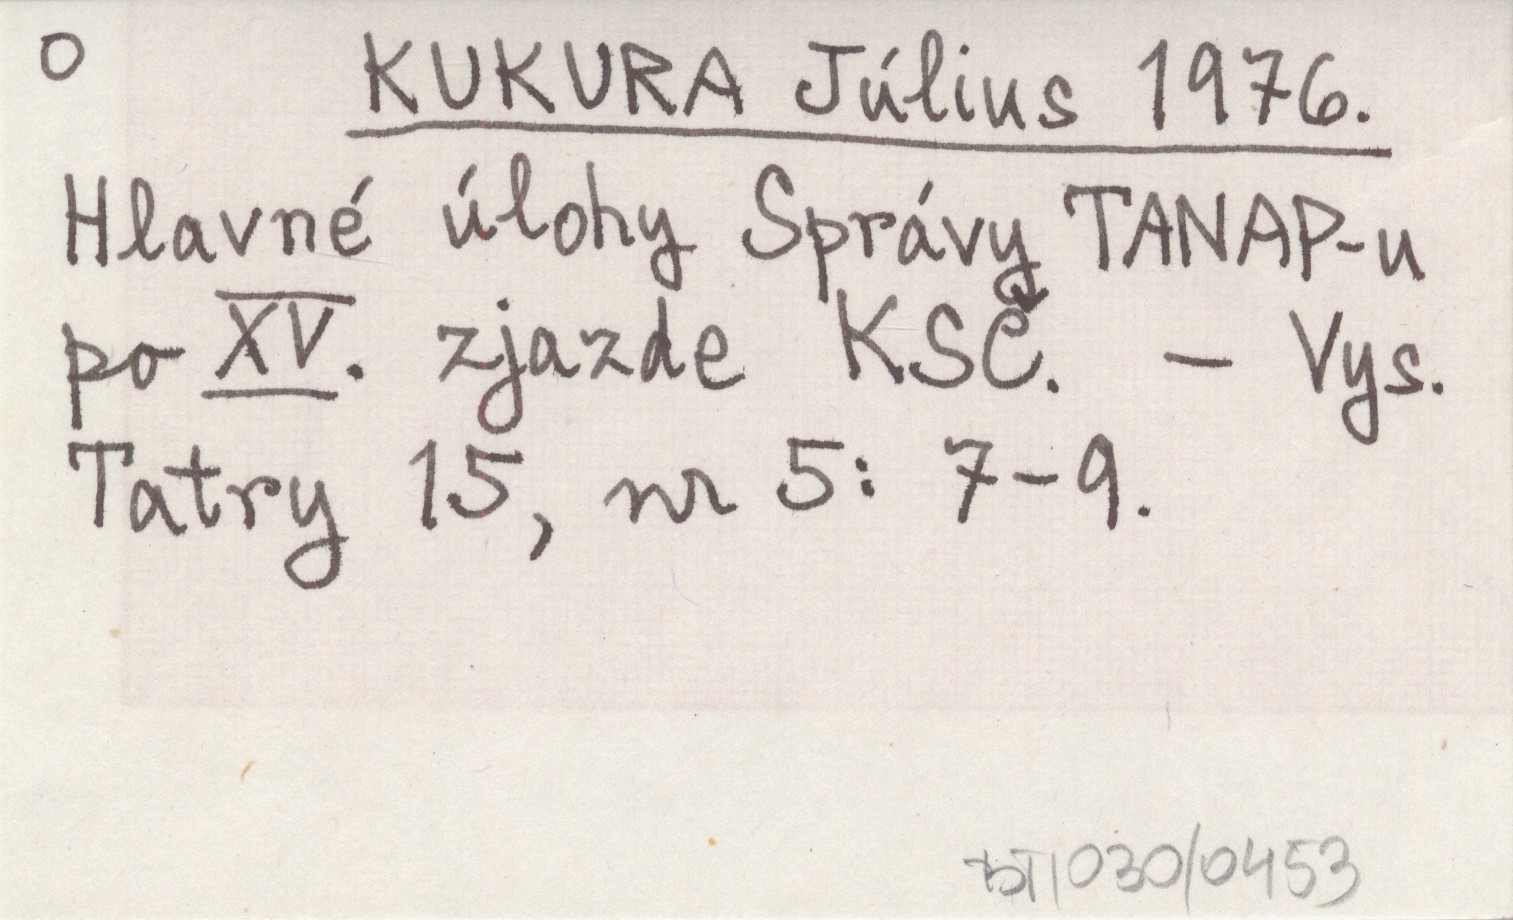 O KUKURA Július 1976.
Hlavné úlohy Správy TANAP-u
po XV. zjazde KSČ. – Vys.
Tatry 15, nr 5: 7–9.
BT/030/0453